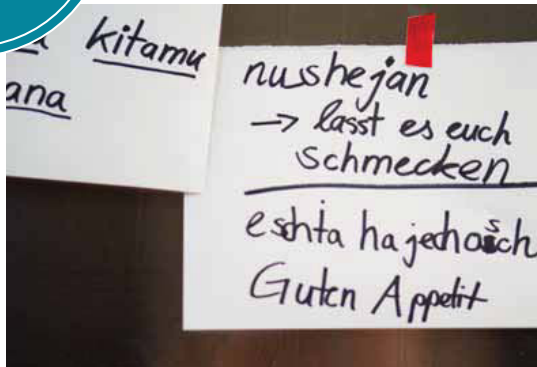 kitamu
ana
nushejan
→ lasst es euch
schmecken
eschta ha
Guten Appetit